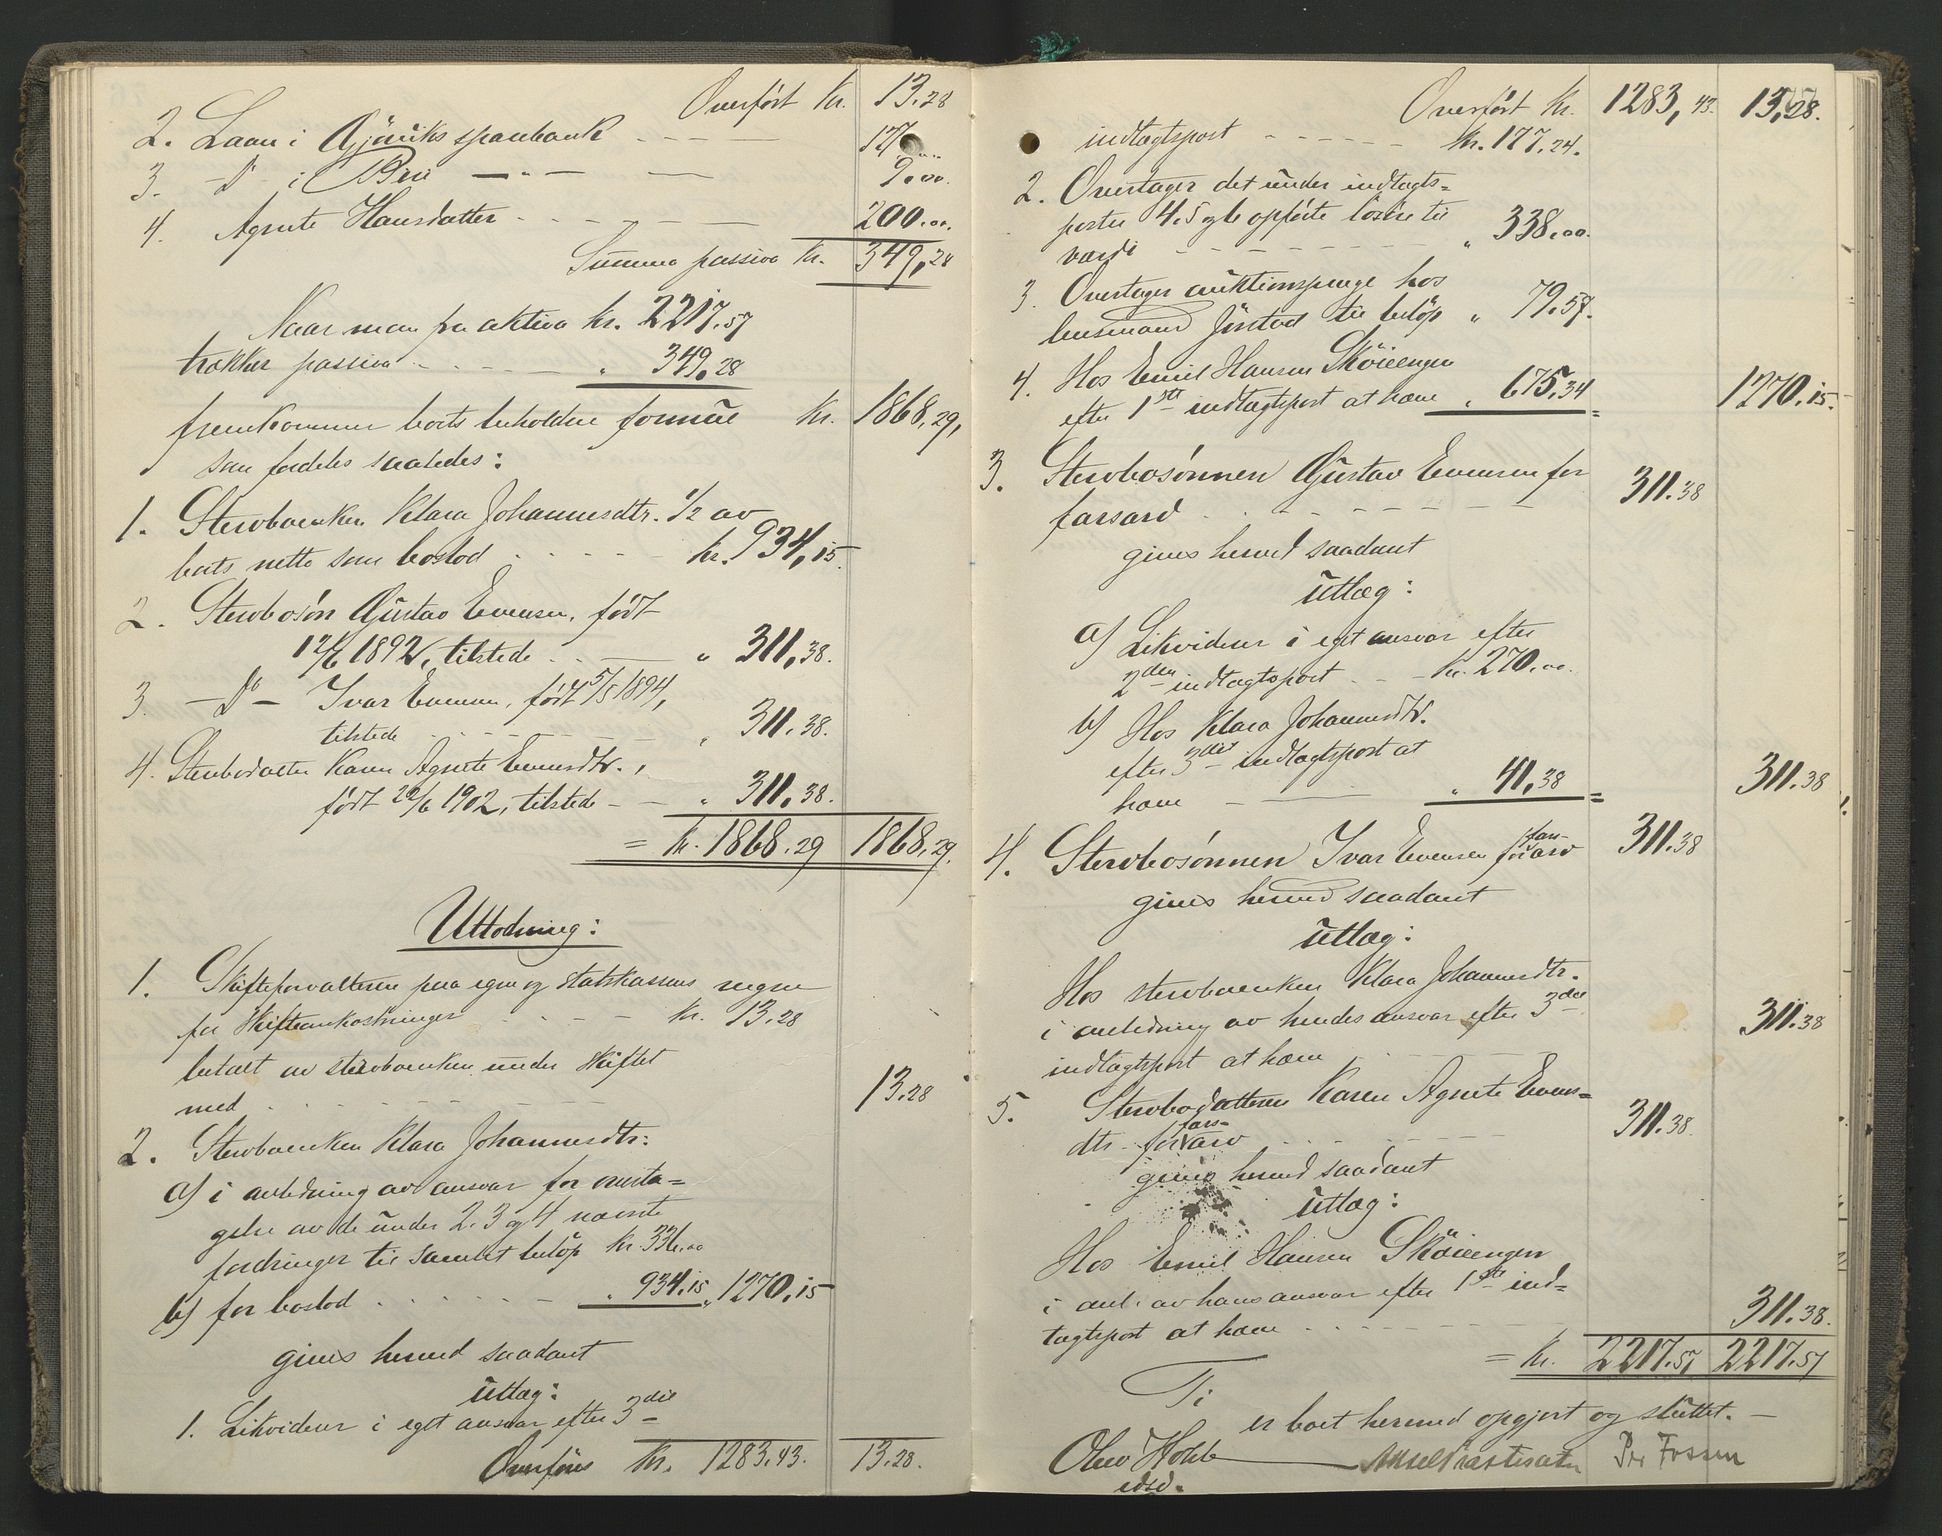 Overført Kr. 13.28
2. Laan i Gjøviks sparebank - - 127
3. -D- i Biri - " - - 9.00.
4. Agnete Hansdatter - - - - - 200.00.
Summa passiva Kr. 349,28
Naar man fra aktiva Kr. 2217.57
trækker passiva - - - - „ 349,28
fremkommer boets beholdne formue Kr. 1868,29,
som fordeles saaledes:
1. Sterboenken Klara Johannesdtr. 1/2 av
boets netto som boslod - - - - Kr. 934,15.
2. Sterbosøn Gustav Evensen, født
12/6 1892, tilstede - - „ 311,38.
3. -Do- Ivar Evensen, født 5/5 1894,
tilstede - - - - „ 311.38.
4. Sterbodatter Karen Agnete Evensdtr.,
født 22/6 1902, tilstede - - „ 311,38.
= Kr. 1868.29 1868,29.
Utlodning:
1. Skifteforvalteren paa egne og statskassens vegne
for skifteomkostninger - - - - Kr. 13.28
betalt av sterboenken under skiftet
med - - - - - - 13.28
2. Sterboenken Klara Johannesdtr:
a) i anledning av ansvar for overta=
gelse av de under 2. 3 og 4 nævnte
fordringer til samlet beløp Kr. 336.00
b) for boslod - - - - - - „ 934.15 „ 1270,15
gives herved saadant
utlæg:
1. Likviderer i eget ansvar efter 3die
Overføres Kr. 1283.43. 13.28.
Overført Kr. 1283,43. 13,28.
indtægtspost - - - - - Kr. 177.24.
2. Overtager det under indtægts=
poster 4. 5 og 6 opførte løsøre til
værdi - - - - - „ 338,00.
3. Overtager auktionspenge hos
lensmand Jørstad til beløp „ 79.57.
4. Hos Emil Hansen Skøiengen
efter 1ste indtægtspost at hæve „ 675,34 = 1270.15.
3. Sterbosønnen Gustav Evensen for
farsarv - - - - - - 311.38
gives herved saadant
utlæg:
a) Likviderer i eget ansvar efter
2den indtægtspost - - - Kr. 270.00.
b) Hos Klara Johannesdtr.
efter 3die indtægtspost at
hæve - - - „ 41,38 = 311.38
4. Sterbosønnen Ivar Evensen for fars-arv 311.38
gives herved saadant
utlæg:
Hos sterboenken Klara Johannesdtr.
i anledning av hendes ansvar efter 3die
indtægtspost at hæve - - - - 311.38
5. Sterbodatteren Karen Agnete Evens=
dtr. for fars-arv - - - - - 311.38.
gives herved saadant
utlæg:
Hos Emil Hansen Skøiengen
i anl. av hans ansvar efter 1ste ind=
tægtspost at hæve - - - - - - 311.38.
= Kr. 2217.57 2217.57
Ti
er boet herved opgjort og sluttet. -
Olav Per Fossen
edsv.